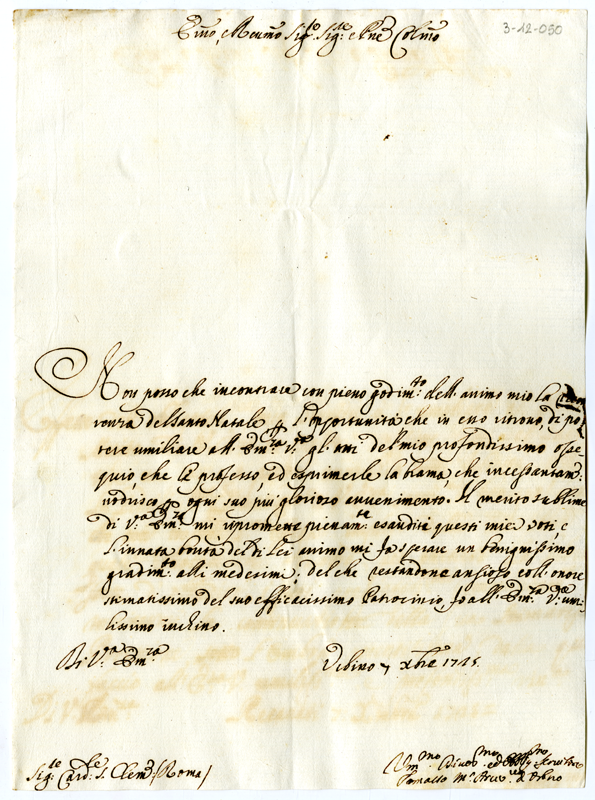 Emo, e Rmo Sig.r Sig.r e Pne Colmo
3-12-050
Non posso che incontrare con pieno godim.to dell'animo mio la
renza del Santo Natale p l'opportunità che in esso ritrovo, di po,
tere umiliare all' Em.za V.ra gl' atti del mio profondissimo osse,
quio, che Le professo, ed esprimerle la brama, che incessantem.
nodrisco p ogni suo più glorioso avvenimento. Il merito sublime
di V.ra Em.za mi ripromette pienam.te esauditi questi miei voti, e
l'innata bontà del di Lei animo mi fa sperare un benignissimo
gradim.to alli medesimi; del che restandone ansioso coll' onore
stimatissimo del suo efficacissimo Patrocinio, fo all' Em.za V.ra umi,
lissimo inchino.
Di V.ra Em.za
Urbino 7 Xbre 1745.
Sig.r Card.le S. Clem.te (Roma)
Um.mo Divot.mo ed Obb.mo Servitore
Tomasso M.a Arciv. d'Urbino